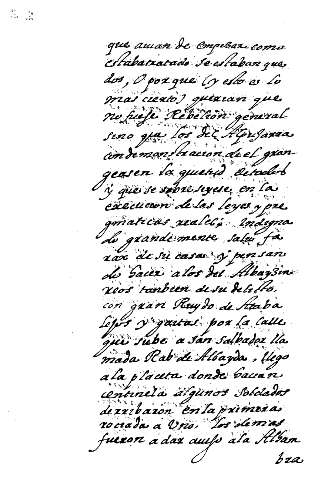 que avian de empezar como
estaba tratado se estaban que
dos, o por que (y esto es lo
mas cierto) querian que
no fuese Rebelion general
sino que los del Alpujarra
con demonstracion de el gran
geasen la quietud de todos
y que se sobreseyese en la
execucion de las leyes y pre
gmaticas reales. Indigna
do grandemente salio fa
rax de su casa y pensan
do hacer a los del Albayzin
reos tambien de su delicto
con gran Ruydo de Ataba
lejos y gritas por la calle
que sube a san salbador lla
mada Rab de Albayda, llego
a la placeta donde hacian
centinela algunos soldados
derribaron en la primera
rociada a uno. los demas
fueron a dar aviso a la Alham
bra